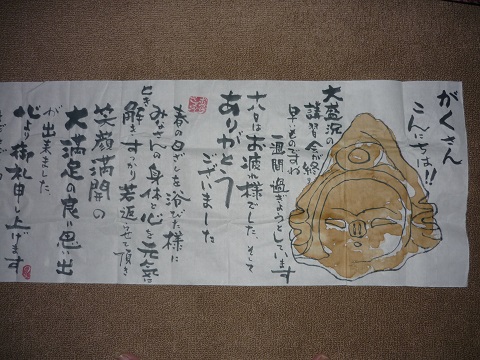 がくさん
こんにちは!!
大盛況の
講習会が終り
早いものですね
一週間過ぎようとしています
十八日はお疲れ様でした、そして
ありがとう
ございました
春の日ざしを浴びた様に
みなさんの身体と心を元気に
とき
解きすっかり若返らせて頂き
笑顔満開の
大満足の良い思い出
が出来ました
心より御礼申し上げます